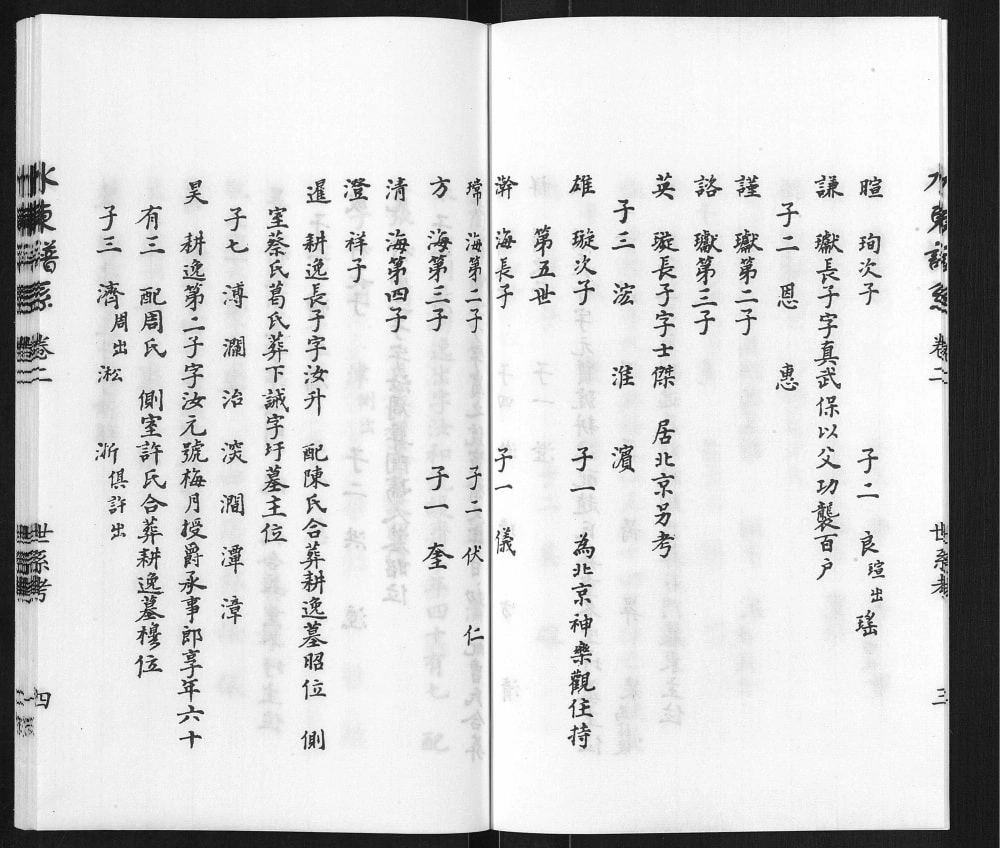 水東譜系 卷二 世系考 三
暄 珣次子 子二 良瑄出 瑤
謙 瓛長子字真武保以父功襲百户
子二恩 惠
謹 瓛第二子
諮 瓛第三子
英 璇長子字士傑 居北京另考
子三浤 淮 濵
雄 璇次子 子一 為北京神樂觀住持
第五世
澣 海長子 子一 儀
瑺 海第二子 子二 伏 仁
方 海第三子 子一 奎
清 海第四子
澄 祥子
暹 耕逸長子字汝升 配陳氏合葬耕逸墓昭位 側
室蔡氏葛氏葬下誠字圩墓主位
子七 溥 瀾 治 淡 澗 潭 漳
昊 耕逸第二子字汝元號梅月授爵承事郎享年六十
有三 配周氏 側室許氏合葬耕逸墓穆位
子三 濟周出 淞 浙俱許出
水東譜系 卷二 世系考 四